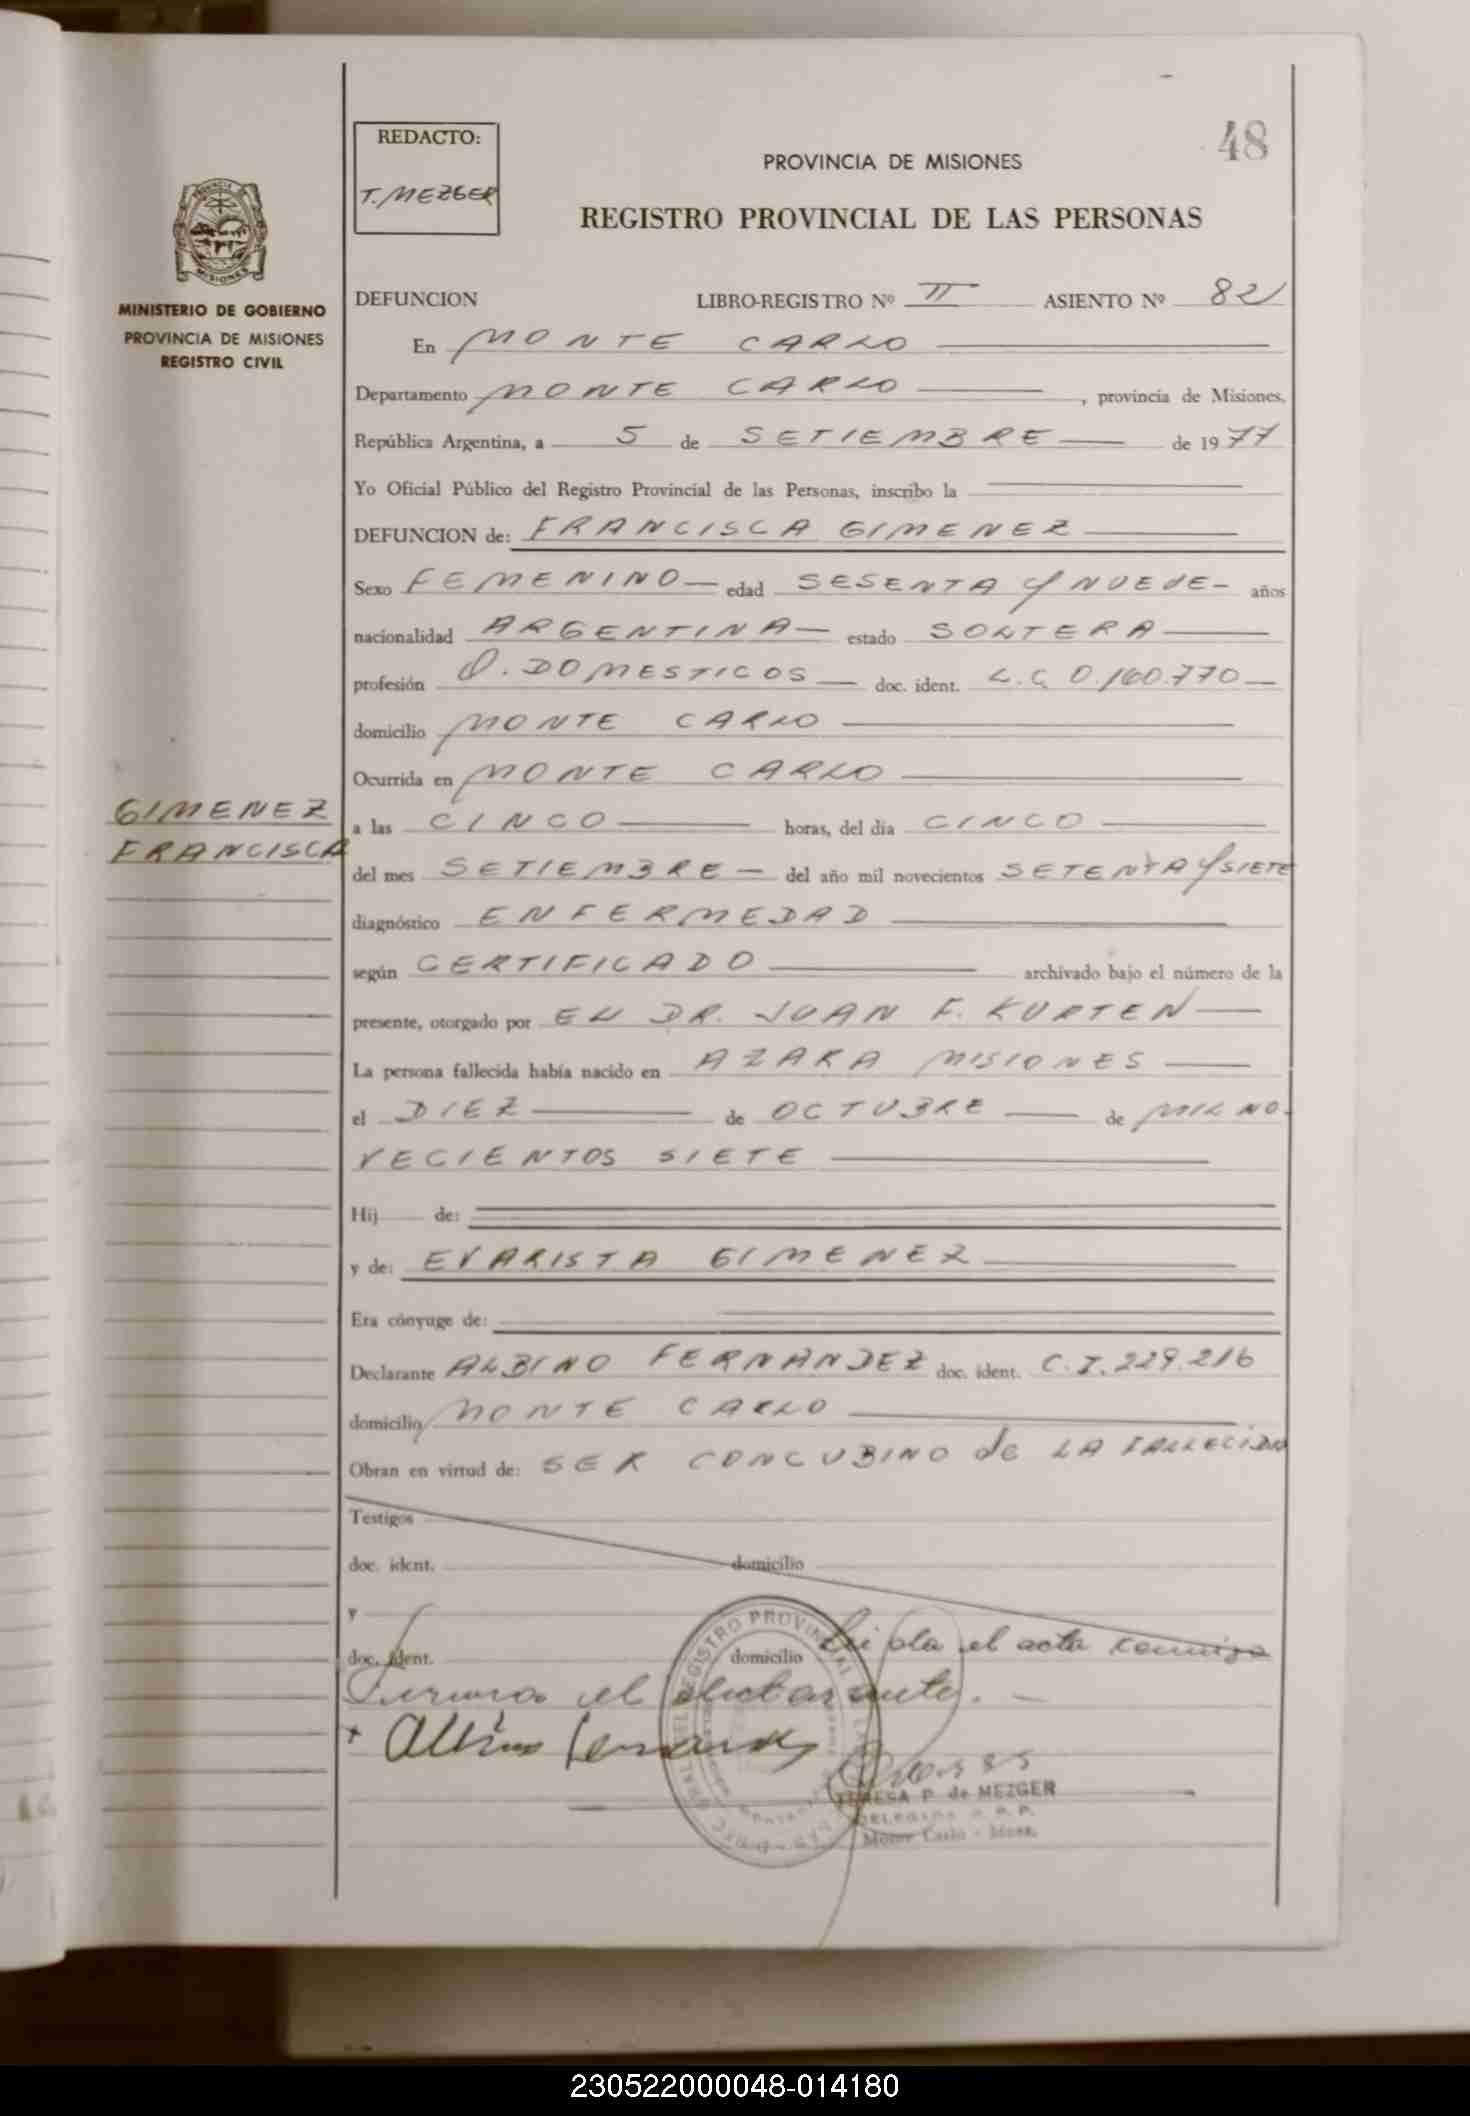 48
REDACTO:
T. MEZGER
PROVINCIA DE MISIONES
REGISTRO PROVINCIAL DE LAS PERSONAS
PROVINCIA DE
MISIONES
MINISTERIO DE GOBIERNO
PROVINCIA DE MISIONES
REGISTRO CIVIL
DEFUNCION LIBRO-REGISTRO Nº II ASIENTO Nº 82
En MONTE CARLO
Departamento MONTE CARLO, provincia de Misiones,
República Argentina, a 5 de SETIEMBRE de 1977
Yo Oficial Público del Registro Provincial de las Personas, inscribo la
DEFUNCION de: FRANCISCA GIMENEZ
Sexo FEMENINO edad SESENTA y NUEVE años
nacionalidad ARGENTINA estado SOLTERA
profesión Q. DOMESTICOS doc. ident. L.C. 0.160.770
domicilio MONTE CARLO
Ocurrida en MONTE CARLO
GIMENEZ
FRANCISCA
a las CINCO horas, del día CINCO
del mes SETIEMBRE del año mil novecientos SETENTA y SIETE
diagnóstico ENFERMEDAD
según CERTIFICADO archivado bajo el número de la
presente, otorgado por EL DR. JUAN F. KURTEN
La persona fallecida había nacido en AZARA MISIONES
el DIEZ de OCTUBRE de MIL NO-
VECIENTOS SIETE
Hij de:
y de: EVARISTA GIMENEZ
Era cónyuge de:
Declarante ALBINO FERNANDEZ doc. ident. C.I. 229.216
domicilio MONTE CARLO
Obran en virtud de: SER CONCUBINO de LA FALLECIDA
Testigos
doc. ident. domicilio
y
doc. ident. domicilio Leida el acta
Firma el declarante.
+ Albino Fernandez
TERESA P. de MEZGER
Monte Carlo - Mnes.
230522000048-014180